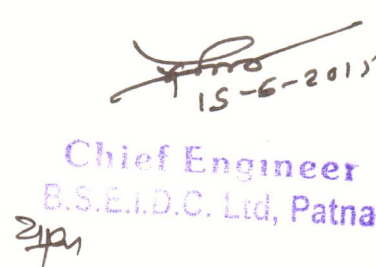 15-6-2015
Chief Engineer
B.S.E.I.D.C. Ltd, Patna